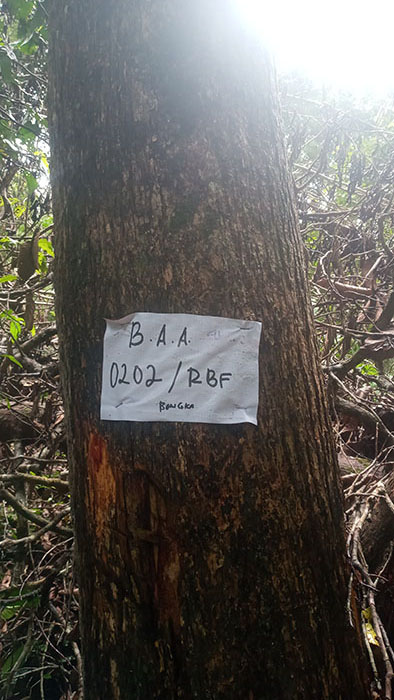 B.A.A.
0202/RBF
BONGKA